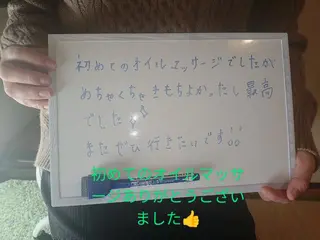 初めてのオイルマッサージでしたが
めちゃくちゃきもちよかったし最高
でした
またぜひ行きたいです!!
初めてのオイルマッサ
ージありがとうござい
ました👍